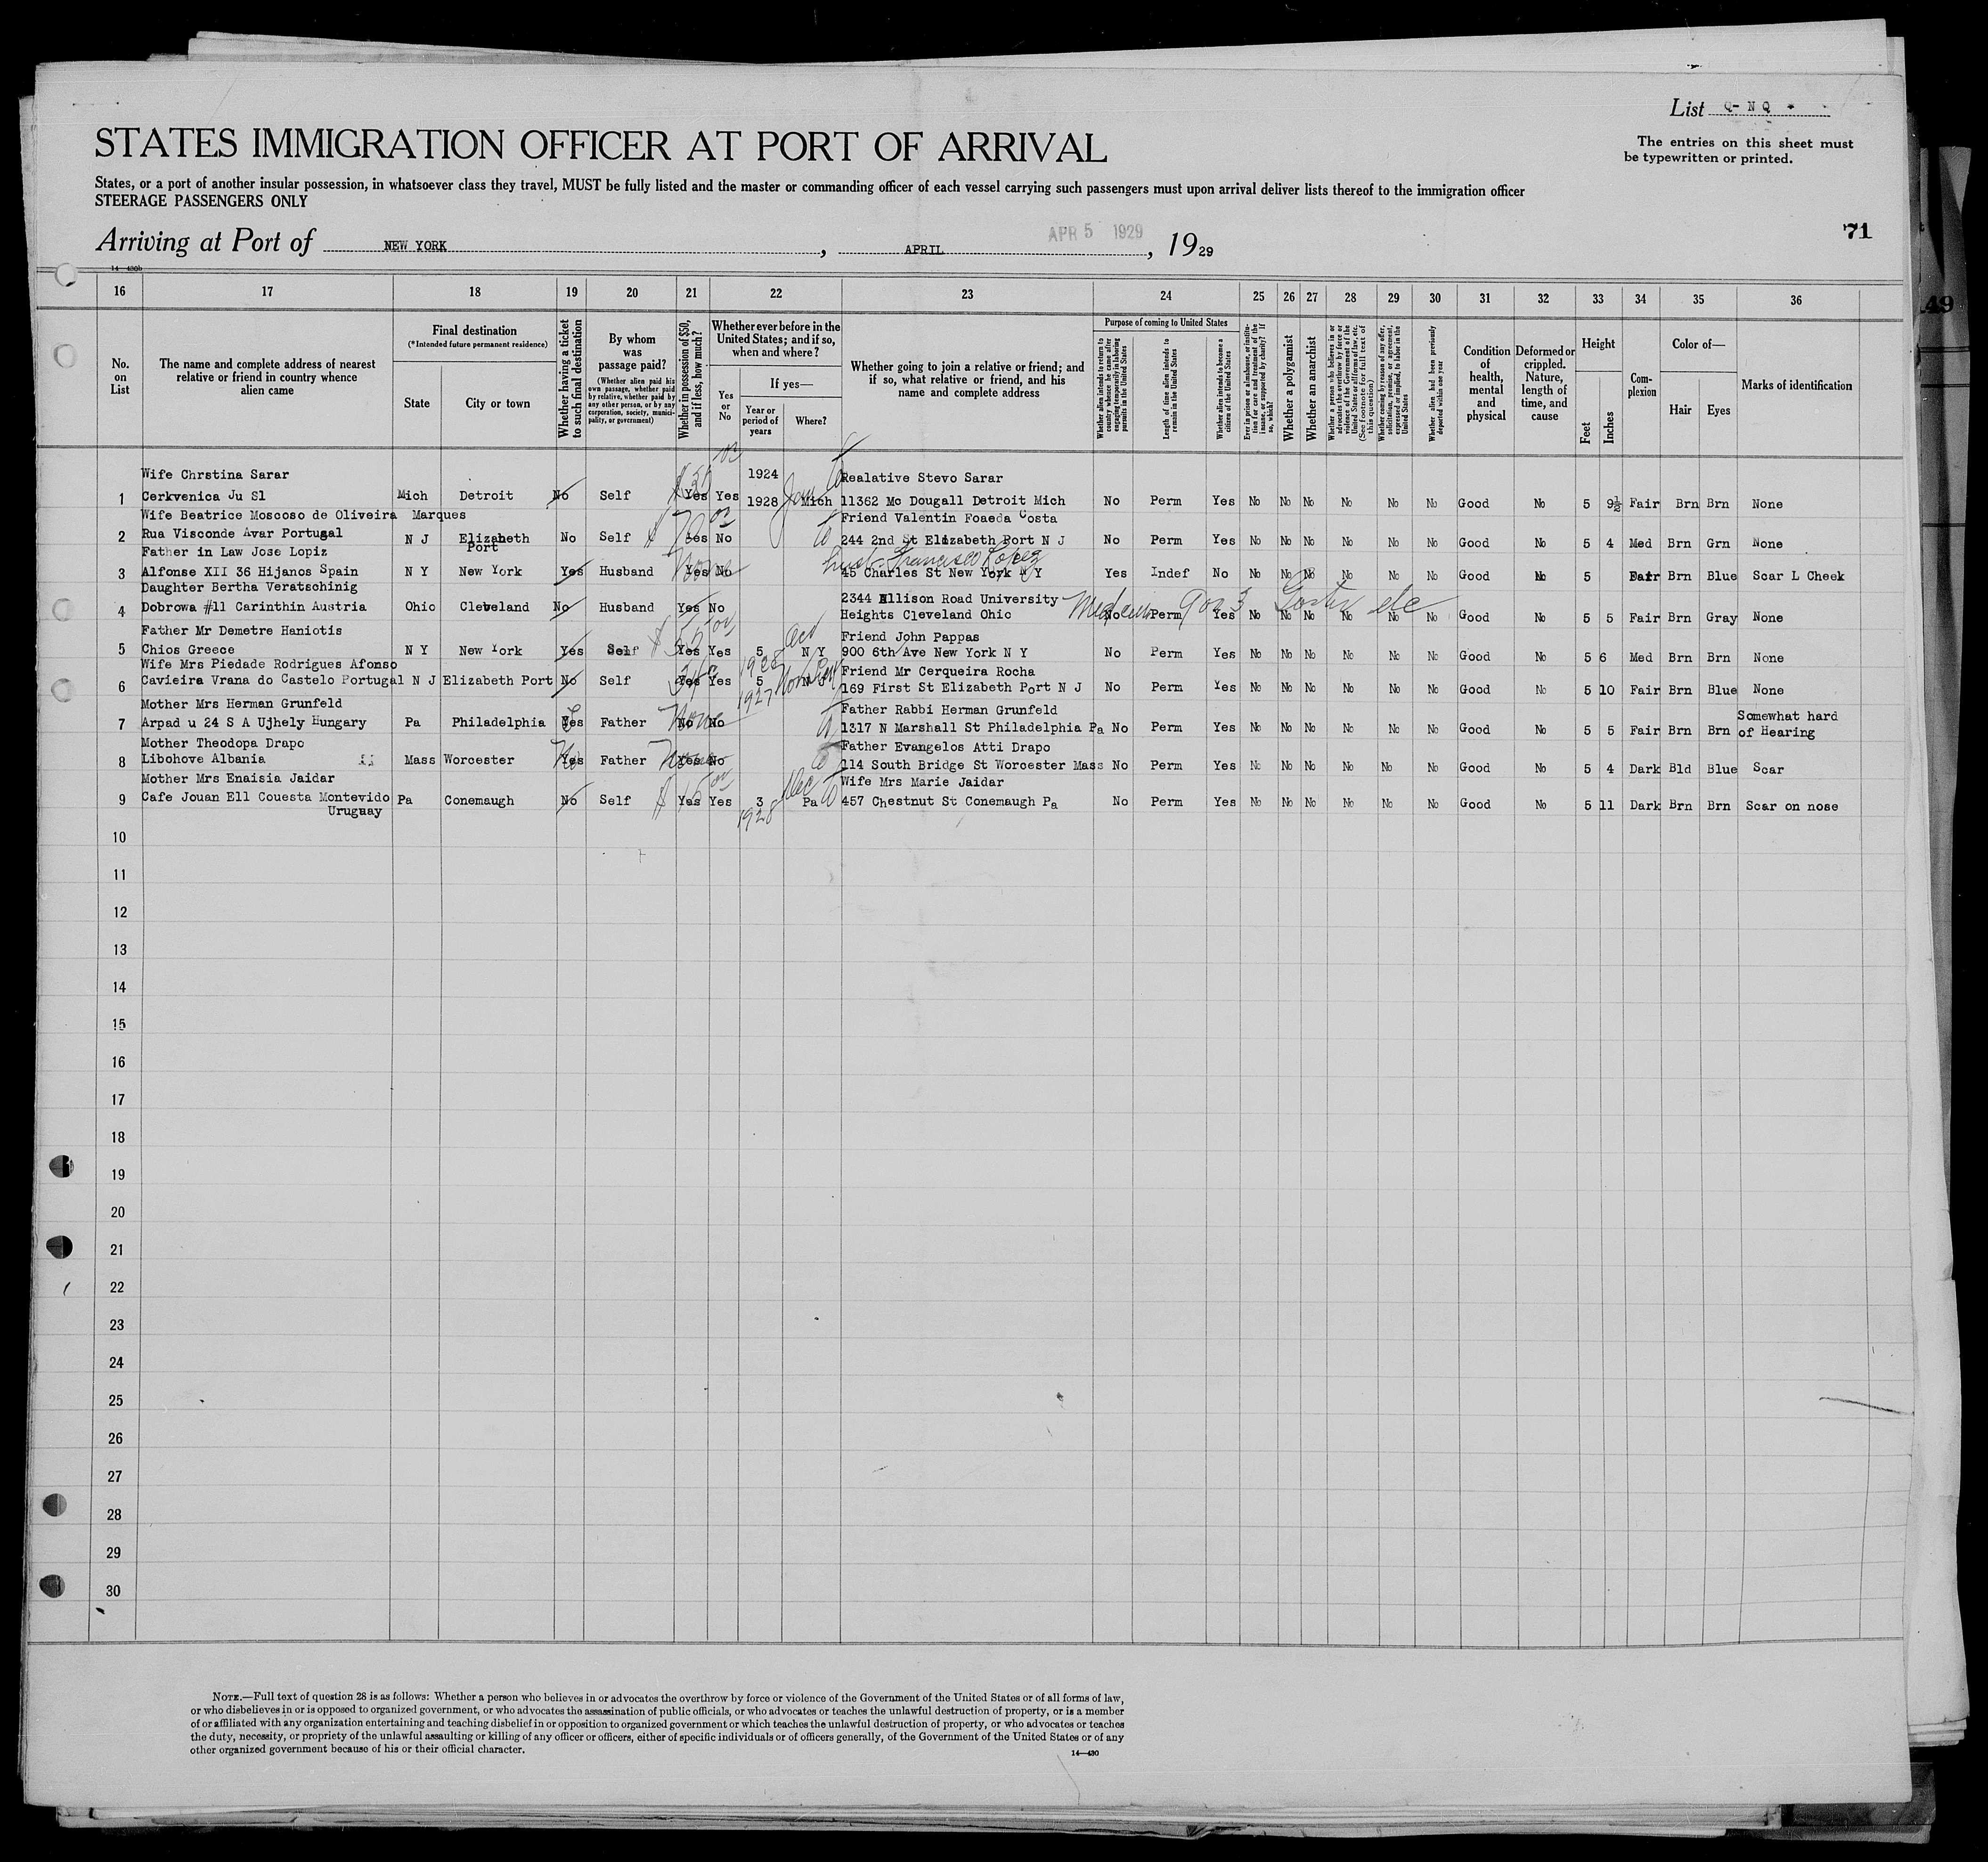 List Q- N Q
STATES IMMIGRATION OFFICER AT PORT OF ARRIVAL
The entries on this sheet must
be typewritten or printed.
States, or a port of another insular possession, in whatsoever class they travel, MUST be fully listed and the master or commanding officer of each vessel carrying such passengers must upon arrival deliver lists thereof to the immigration officer
STEERAGE PASSENGERS ONLY
71
Arriving at Port of NEW YORK, APRIL APR 5 1929, 1929
14—430b
16 17 18 19 20 21 22 23 24 25 26 27 28 29 30 31 32 33 34 35 36
No. on List
The name and complete address of nearest relative or friend in country whence alien came
Final destination
(*Intended future permanent residence)
State
City or town
Whether having a ticket to such final destination
By whom was passage paid?
(Whether alien paid his own passage, whether paid by relative, whether paid by any other person, or by any corporation, society, municipality, or government)
Whether in possession of $50, and if less, how much?
Whether ever before in the United States; and if so, when and where?
Yes or No
If yes—
Year or period of years
Where?
Whether going to join a relative or friend; and if so, what relative or friend, and his name and complete address
Purpose of coming to United States
Whether alien intends to return to country whence he came after engaging temporarily in laboring pursuits in the United States
Length of time alien intends to remain in the United States
Whether alien intends to become a citizen of the United States
Ever in prison or almshouse, or institution for care and treatment of the insane, or supported by charity? If so, which?
Whether a polygamist
Whether an anarchist
Whether a person who believes in or advocates the overthrow by force or violence of the Government of the United States or all forms of law, etc. (See footnote for full text of this question)
Whether coming by reason of any offer, solicitation, promise, or agreement, expressed or implied, to labor in the United States
Whether alien had been previously deported within one year
Condition of health, mental and physical
Deformed or crippled. Nature, length of time, and cause
Height
Feet
Inches
Complexion
Color of—
Hair
Eyes
Marks of identification
Wife Chrstina Sarar 1924 Realative Stevo Sarar
1 Cerkvenica Ju Sl Mich Detroit No Self Yes Yes 1928 Jan Mich 11362 Mc Dougall Detroit Mich No Perm Yes No No No No No No Good No 5 9½ Fair Brn Brn None
Wife Beatrice Moscoso de Oliveira Marques Friend Valentin Foaeda Costa
2 Rua Visconde Avar Portugal N J Elizabeth Port No Self $70 Yes No 244 2nd St Elizabeth Port N J No Perm Yes No No No No No No Good No 5 4 Med Brn Grn None
Father in Law Jose Lopiz husb- Francisco Lopez
3 Alfonse XII 36 Hijanos Spain N Y New York Yes Husband None Yes No 45 Charles St New York N Y Yes Indef No No No No No No No Good No 5 Fair Brn Blue Scar L Cheek
Daughter Bertha Veratschinig 2344 Allison Road University
4 Dobrowa #11 Carinthin Austria Ohio Cleveland No Husband Yes No Heights Cleveland Ohio No Perm Yes No No No No No No Good No 5 5 Fair Brn Gray None
Father Mr Demetre Haniotis Friend John Pappas
5 Chios Greece N Y New York Yes Self Yes Yes 5 N Y 900 6th Ave New York N Y No Perm Yes No No No No No No Good No 5 6 Med Brn Brn None
Wife Mrs Piedade Rodrigues Afonso Friend Mr Cerqueira Rocha
6 Cavieira Vrana do Castelo Portugal N J Elizabeth Port No Self Yes Yes 5 1927 N J 169 First St Elizabeth Port N J No Perm Yes No No No No No No Good No 5 10 Fair Brn Blue None
Mother Mrs Herman Grunfeld Father Rabbi Herman Grunfeld Somewhat hard
7 Arpad u 24 S A Ujhely Hungary Pa Philadelphia Yes Father None No No 1317 N Marshall St Philadelphia Pa No Perm Yes No No No No No No Good No 5 5 Fair Brn Brn of Hearing
Mother Theodopa Drapo Father Evangelos Atti Drapo
8 Libohove Albania Mass Worcester No Yes Father None Yes No 114 South Bridge St Worcester Mass No Perm Yes No No No No No No Good No 5 4 Dark Bld Blue Scar
Mother Mrs Enaisia Jaidar Wife Mrs Marie Jaidar
9 Cafe Jouan Ell Couesta Montevido Pa Conemaugh No Self $15 Yes Yes 3 1928 Dec Pa 457 Chestnut St Conemaugh Pa No Perm Yes No No No No No No Good No 5 11 Dark Brn Brn Scar on nose
Urugaay
10
11
12
13
14
15
16
17
18
19
20
21
22
23
24
25
26
27
28
29
30
NOTE.—Full text of question 28 is as follows: Whether a person who believes in or advocates the overthrow by force or violence of the Government of the United States or of all forms of law,
or who disbelieves in or is opposed to organized government, or who advocates the assassination of public officials, or who advocates or teaches the unlawful destruction of property, or is a member
of or affiliated with any organization entertaining and teaching disbelief in or opposition to organized government or which teaches the unlawful destruction of property, or who advocates or teaches
the duty, necessity, or propriety of the unlawful assaulting or killing of any officer or officers, either of specific individuals or of officers generally, of the Government of the United States or of any
other organized government because of his or their official character.
14—430
49